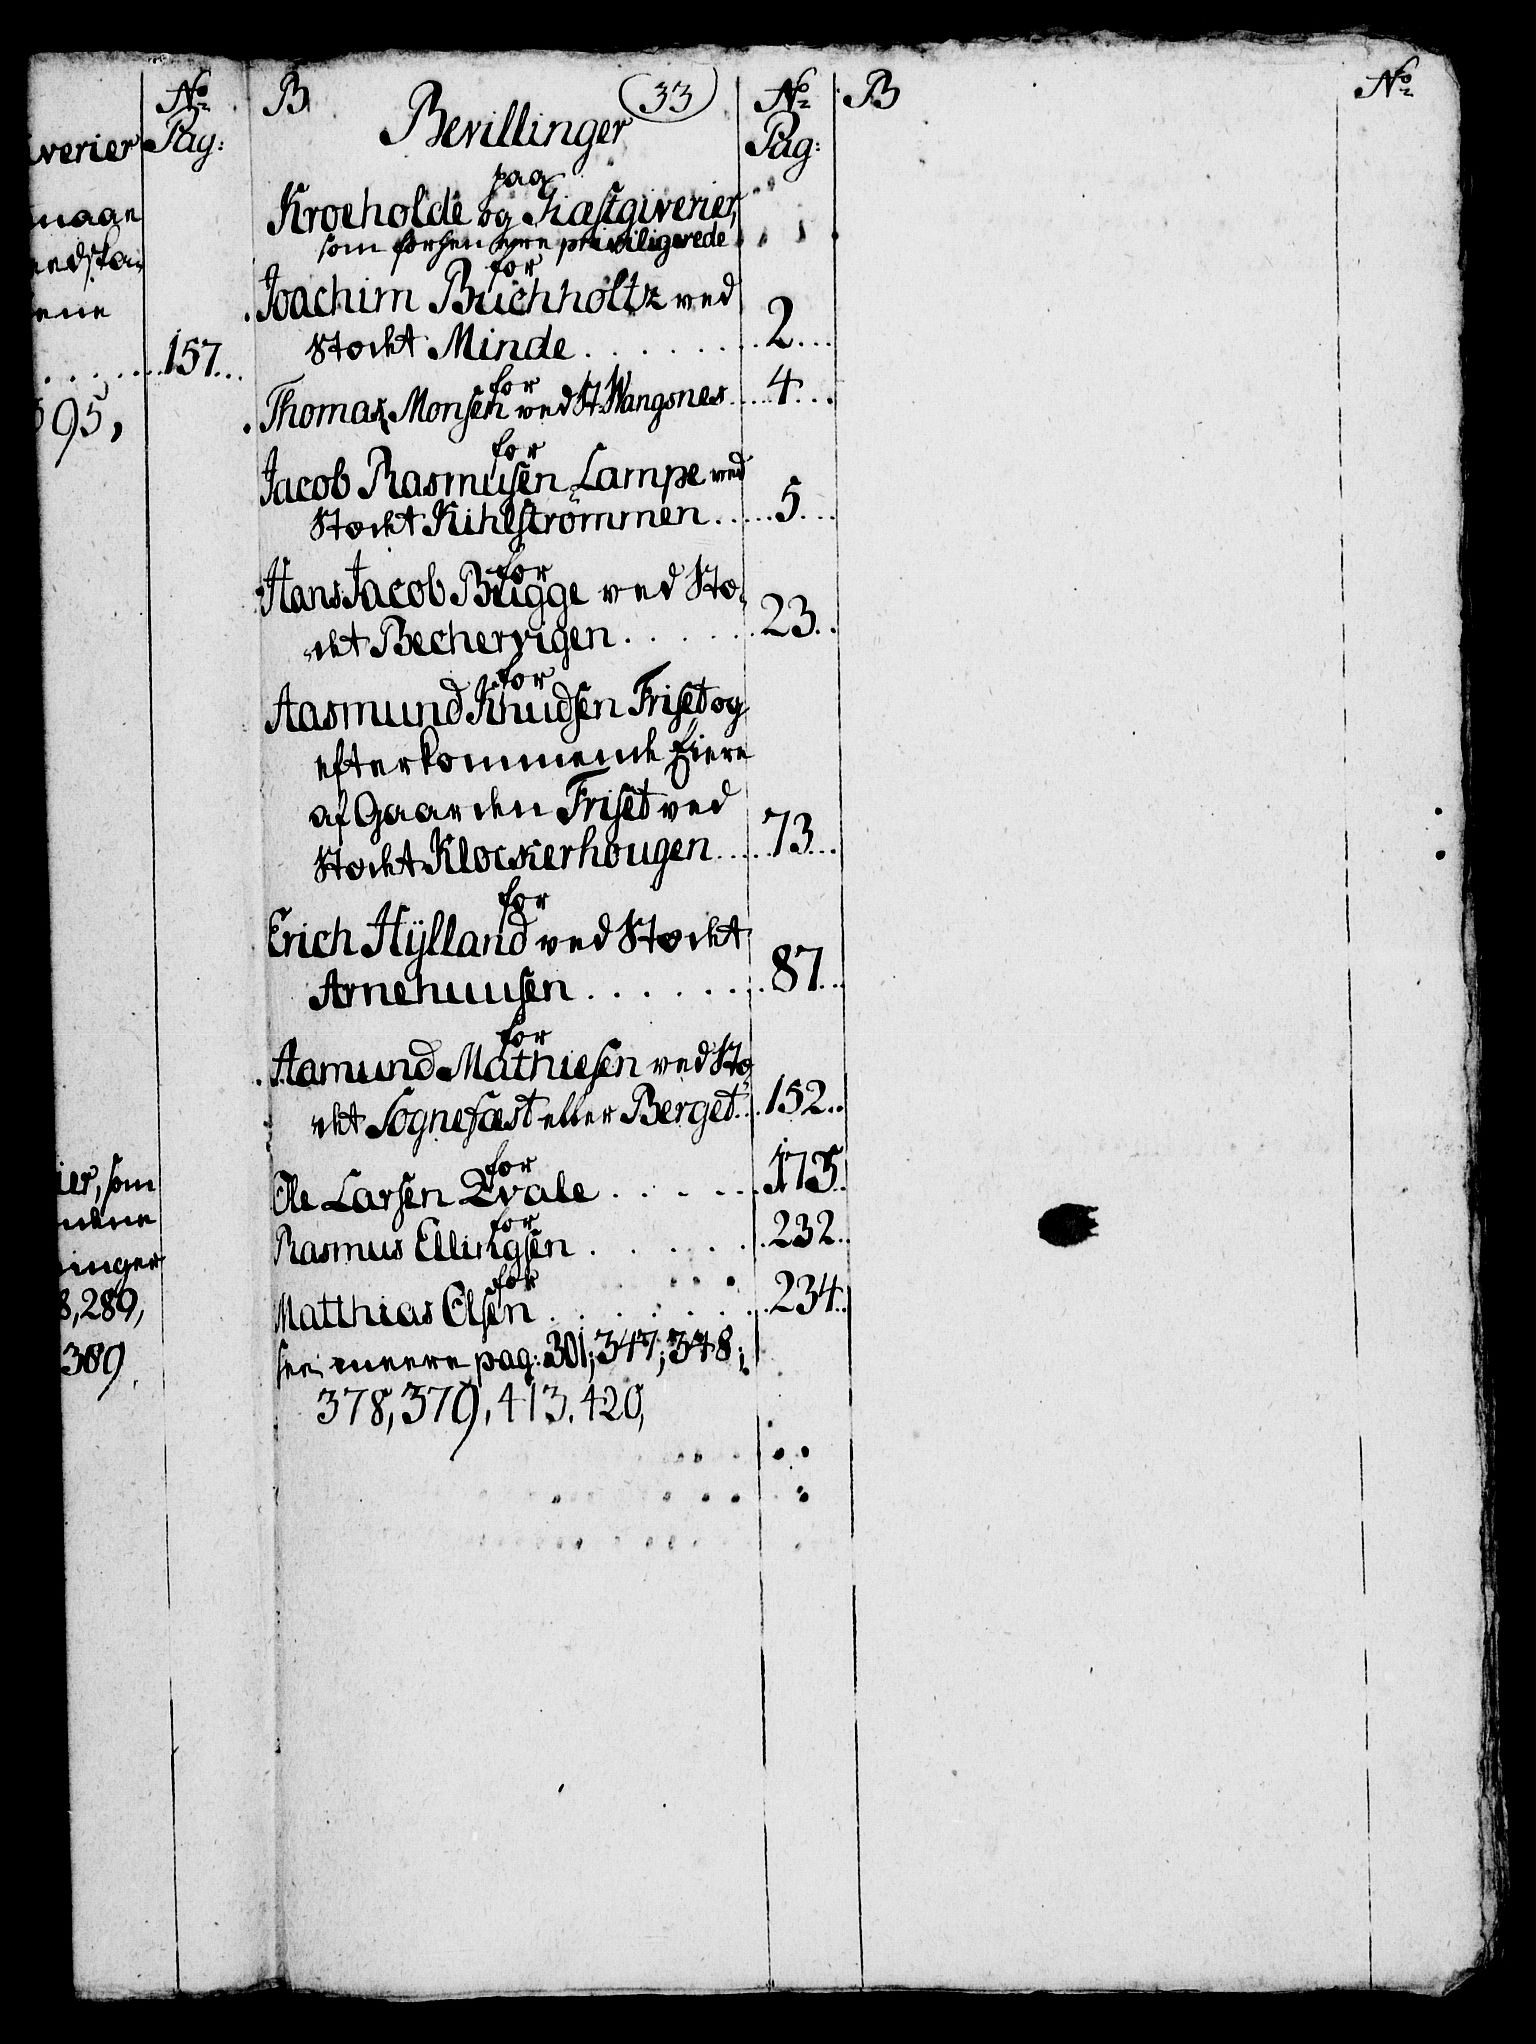 No
Pag:
verier
maae
edsta-
ene
157
95,
ier, som
nene
inger
8, 289,
389
B
33
No
Pag:
Bevillinger
paa
Kroeholde og Giæstgiverier,
som forhen ere priviligerede
for
Joachim Buchholtz ved
Stædet Minde . . . . . . . 2
for
Thomas Monsen ved St. Wangsnes . . 4
for
Jacob Rasmusen Lampe ved
Stædet Kihlstrømmen . . . 5
for
Hans Jacob Brügge ved Stæ-
det Bechervigen . . . . . . 23
for
Aasmund Knudsen Friset og
efterkommende Eiere
af Gaarden Friset ved
Stædet Klockerhougen . . . 73
for
Erich Hÿlland ved Stædet
Arnehuusen . . . . . . . 87
for
Aamund Mathiesen ved Stæ-
det Sognefæst eller Berget . . 152
for
Ole Larsen Qvale . . . . . 175
for
Rasmus Ellingsen . . . . . . 232
for
Matthias Olsen . . . . . . . 234
see meere pag: 301; 347; 348;
378, 379, 413. 420,
B
No